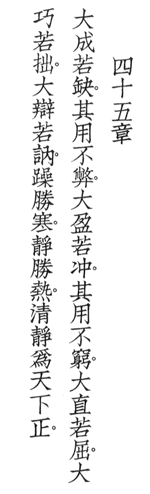 四十五章
大成若缺。其用不弊大盈若冲。其用不窮。大直若屈。大
巧若拙。大辯若訥。躁勝塞。靜勝熱。清靜爲天下正。